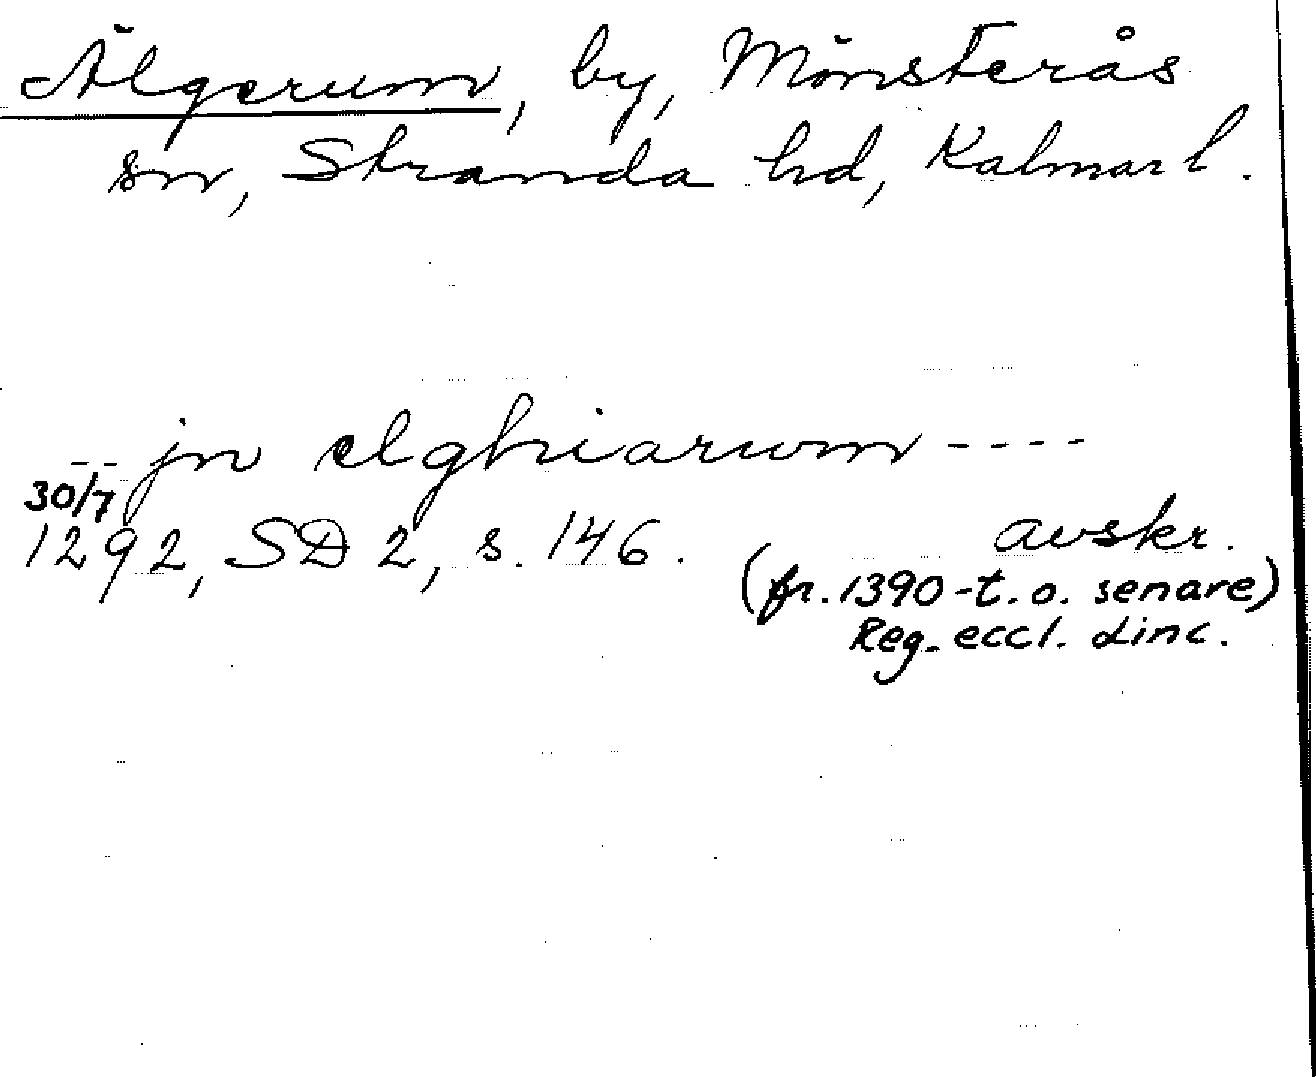 Älgerum, by, Mönsterås
sn, Stranda hd, Kalmar l.
-- jn elghiarum ----
30/7
1292, SD 2, s. 146. avskr.
(fr. 1390-t. o. senare)
Reg. eccl. Linc.